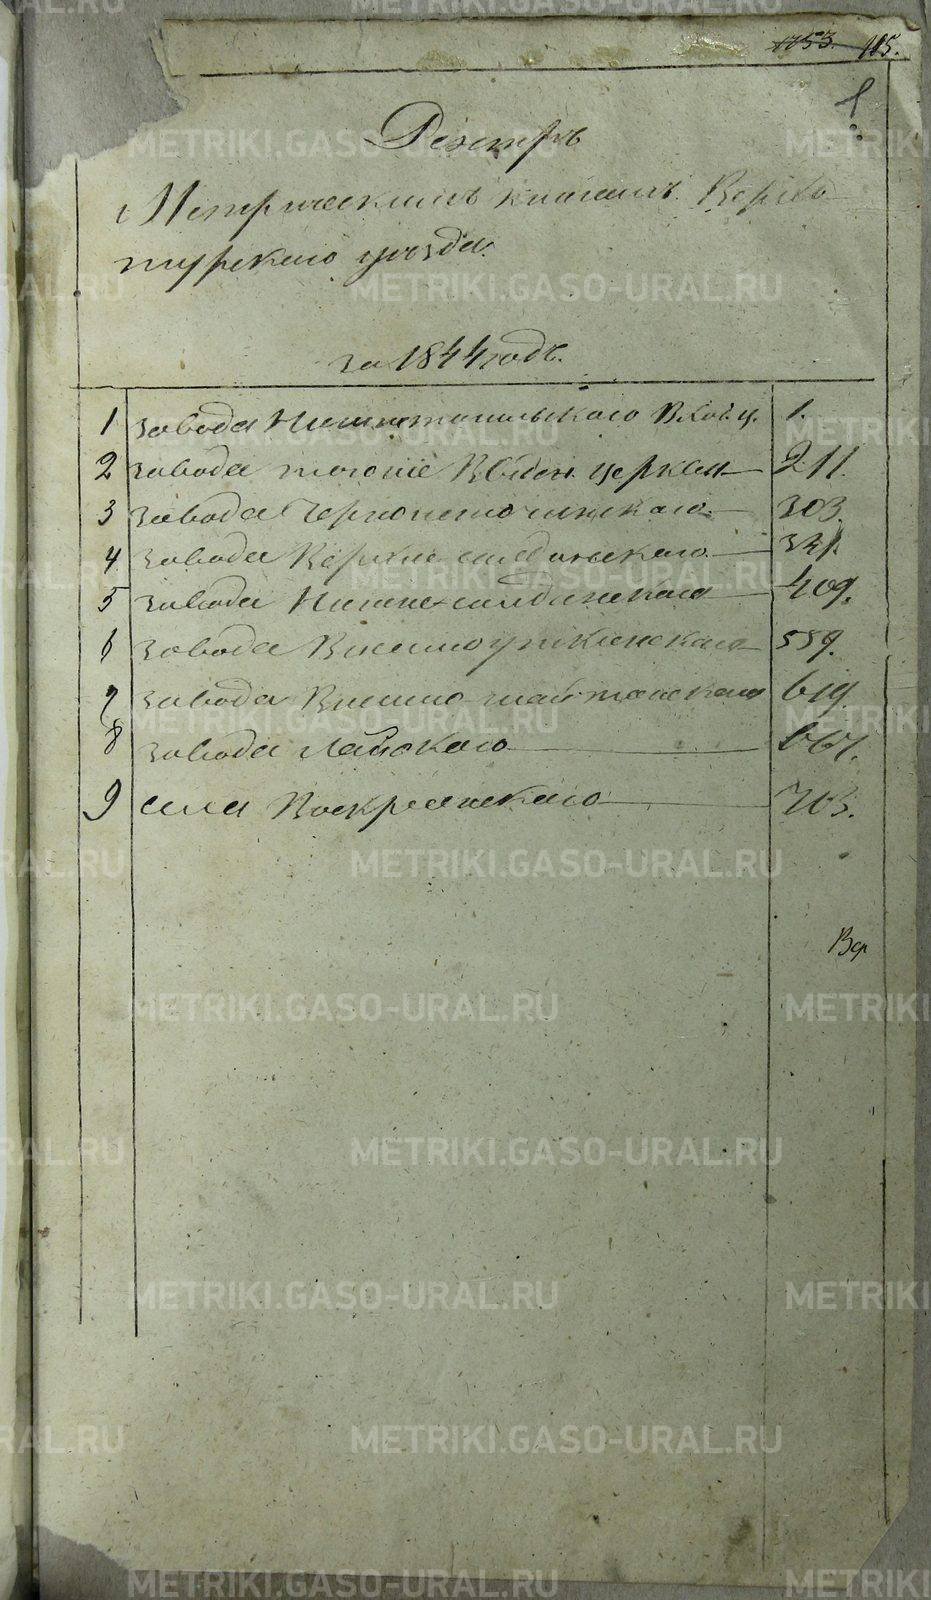 1753. 115.
Реэстръ
Метрическимъ книгамъ Верхо-
турскаго уѣзда.
за 1844 годъ.
1 завода Нижнетагильскаго Вход. ц. 1.
2 завода тогоже Введен. церкви 211.
3 завода Черноисточинскаго 303.
4 завода Верхнесалдинскаго
5 завода Нижнесалдинскаго 409.
6 завода Висимоуткинскаго 559.
7 завода Висимо-шайтанскаго 619.
8 завода Лайскаго 661.
9 села Воскресенскаго 703.
METRIKI.GASO-URAL.RU